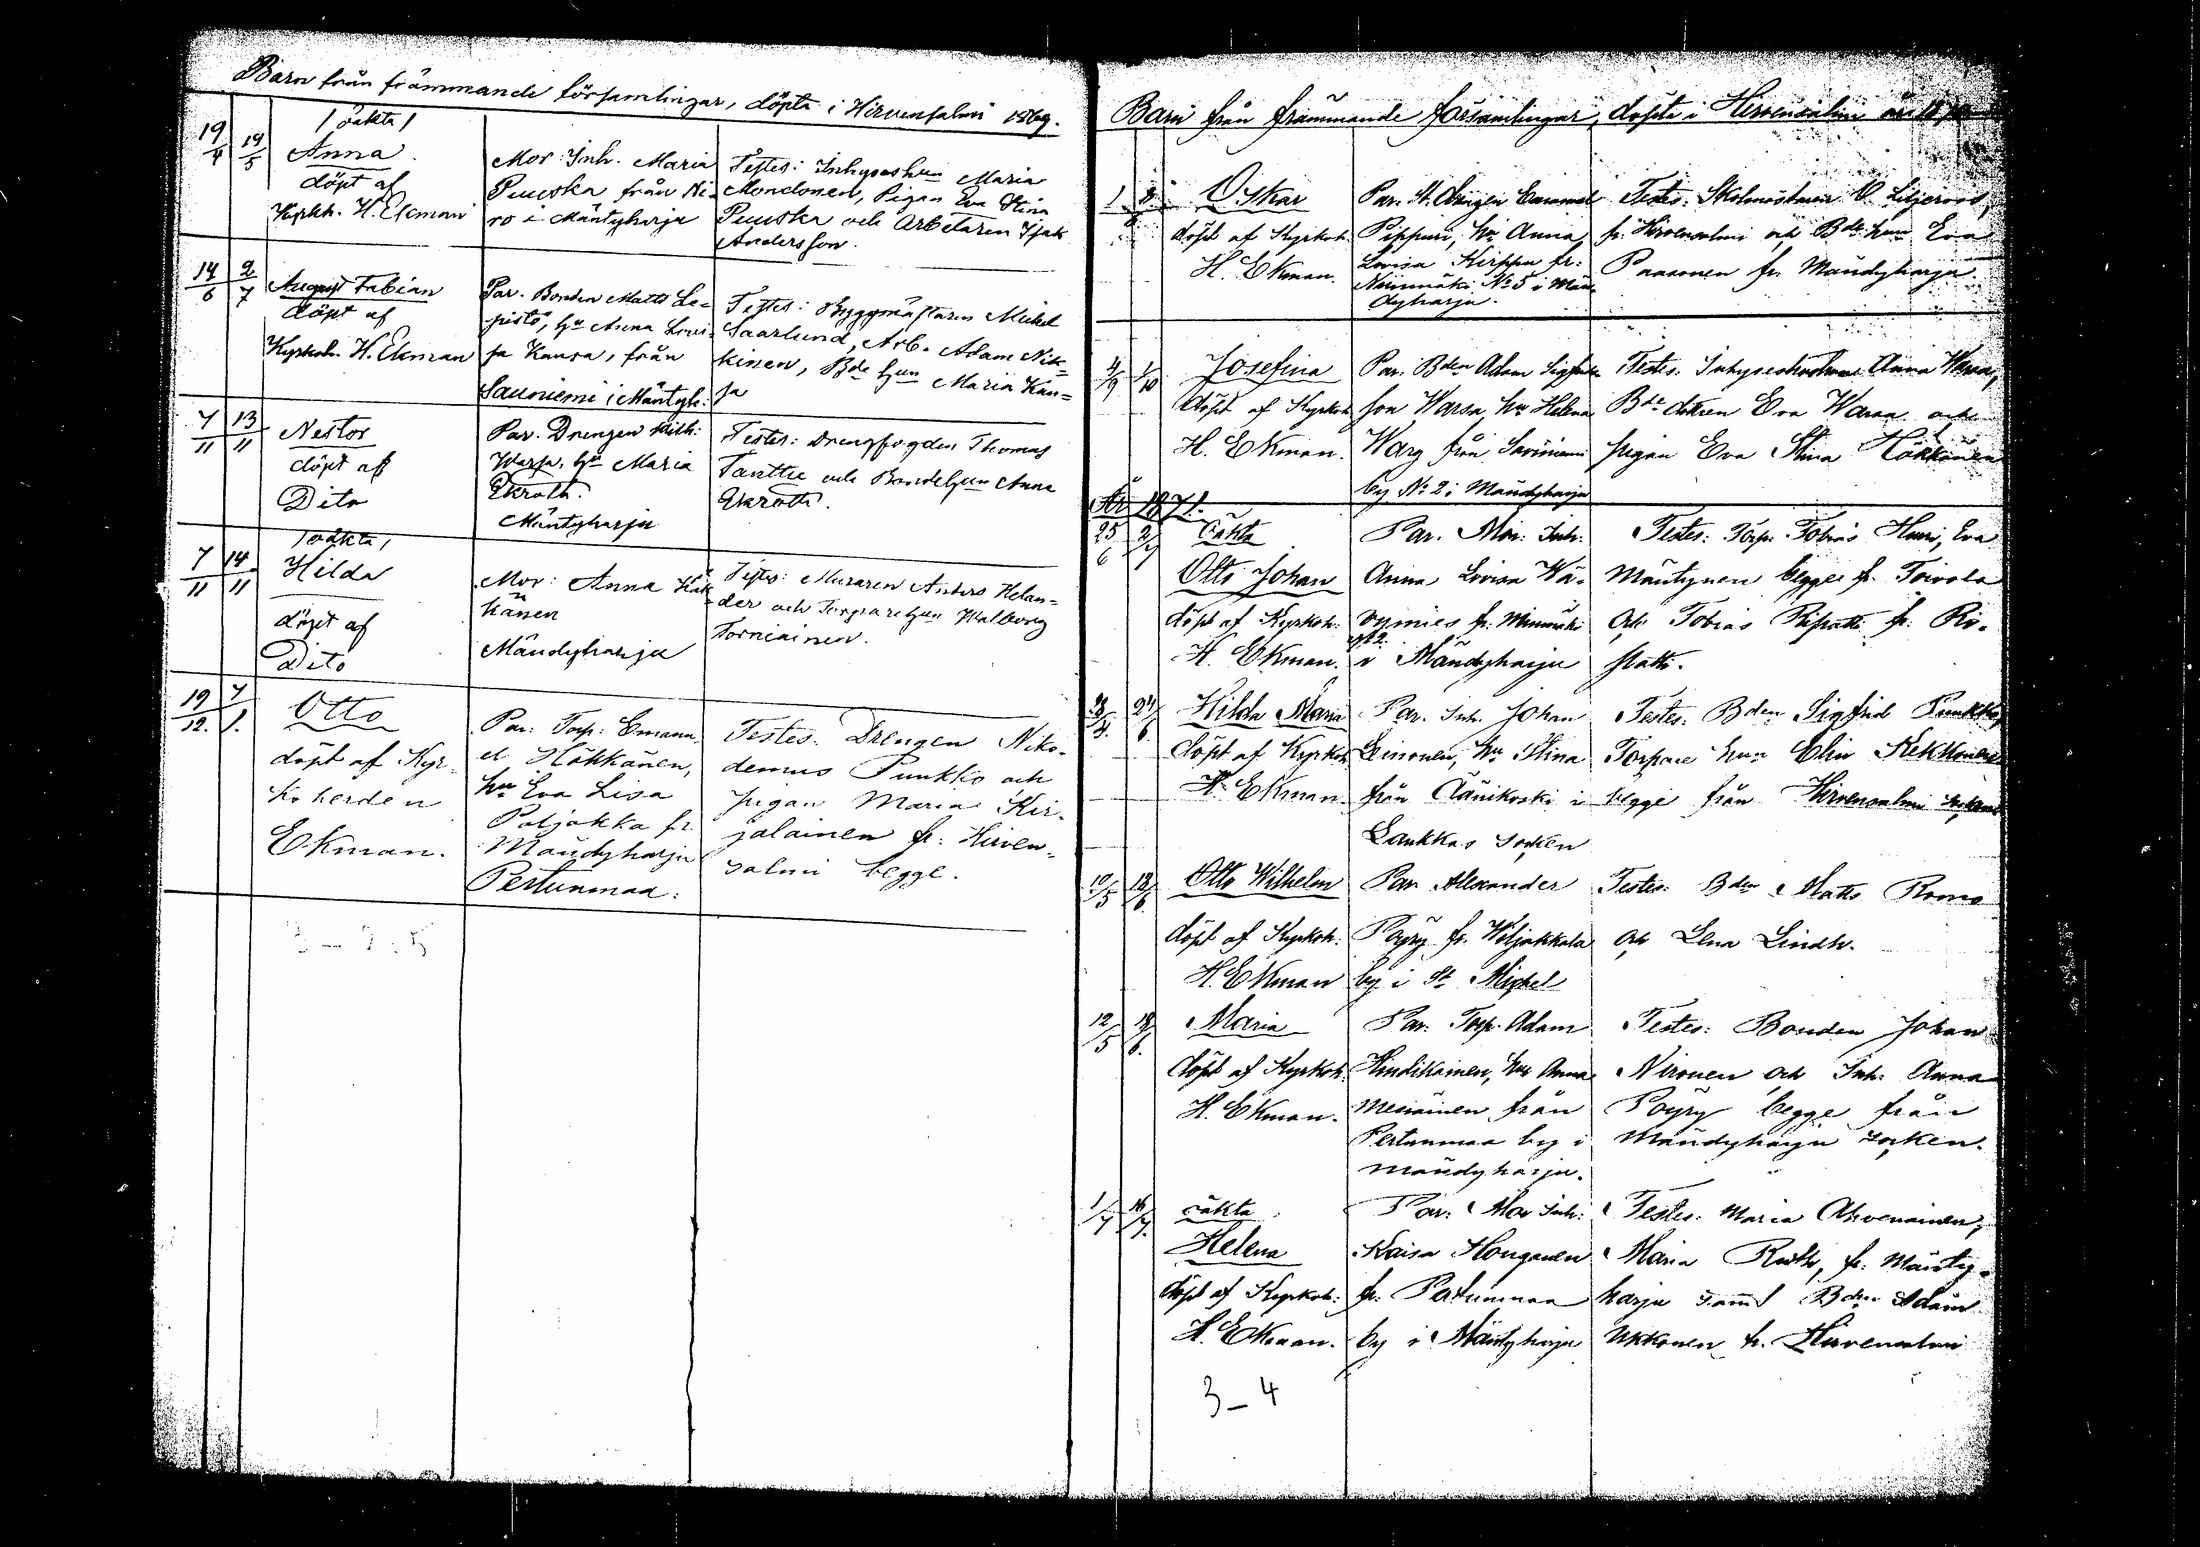 Barn från främmande församlingar, döpta i Hirvensalmi 1869.
19/4 14/5
/oäkta/
Anna
döpt af
Kyrkh. H. Ekman
Mor: Inh. Maria
Puuska från Ni-
ro i Mäntyharju
Testes: Inhyseshun Maria
Mondonen, Pigan Eva Stina
Puuska och Arbetaren Isak
Andersson.
14/6 2/7
August Fabian
döpt af
Kyrkoh. H. Ekman
Par. Bonden Matts Le-
pistö, hu Anna Lovi-
sa Kansa, från
Sauniemi i Mäntyh:
Testes: Byggmästaren Mickel
Saarlund, Arb. Adam Nik-
kinen, Bde hun Maria Kan-
sa
7/11 13/11
Nestor
döpt af
Dito
Par. Drengen Mich:
Warsa, hu Maria
Ekroth.
Mäntyharju
Testes: Drengfogden Thomas
Tanttu och Bondehun Anna
Ekroth.
7/11 14/11
/oäkta/
Hilda
döpt af
Dito
Mor: Anna Häk-
känen
Mändyharju
Testes: Muraren Anders Helan-
der och Torparehun Walborg
Torniainen.
19/12. 7/1.
Otto
döpt af Kyr-
koherden
Ekman.
Par: Torp: Emanu-
el Häkkänen,
hu Eva Lisa
Poljakka fr.
Mändyharju
Pertunmaa:
Testes: Drengen Niko-
demus Punkko och
pigan Maria Kir-
jalainen fr: Hirven-
salmi begge.
Barn från främmande församlingar, döpte i Hirvensalmi år
Oskar
döpt af Kyrkoh.
H. Ekman.
Par. St. Drengen Emanuel
Pippuri, hu Anna
Lovisa Kirppu fr:
Niinimäki No 5 i Män-
dyharju.
Testes: Skolmästaren O. Liljeroos,
fr: Hirvensalmi och Bde hun Eva
Paasonen fr. Mändyharju.
4/9 1/10
Josefina
döpt af Kyrkoh.
H. Ekman.
Par. Bden Adam Sigfrids
son Warsa, hu Helena
Warg från
by No 2 i Mändyharju
Testes. Anna Warsa,
Bde dotren Eva Warsa och
pigan Eva Stina Häkkänen
År 1871.
25/6 2/7
Oäkta
Otto Johan
döpt af Kyrkoh.
H. Ekman.
Par. Mor: Inh:
Anna Lovisa Wä-
fr: Niinimäki
No 2
i Mändyharju
Testes: Torp: Tobias Eva
Mäntynen begge fr. Toivola
och Tobias Ripatti fr. Ri-
patti.
Hilda Maria
döpt af Kyrkoh.
H. Ekman.
Par. Inh. Johan
Leinonen, hu Stina
från i
Laukkas socken
Testes: Bden Sigfrid Punkko,
Torpare hun Elin Kekkonen
begge från Hirvensalmi socken
10/5 18/6.
Otto Wilhelm
döpt af Kyrkoh.
H. Ekman
Par Alexander
Pöyry fr. Wiljakkala
by i St Mickel
Testes: Bden Matts Romo
och Lena Lindh.
12/5 18/6.
Maria
döpt af Kyrkoh.
H. Ekman.
Par: Torp. Adam
Hindikainen, hu Anna
från
Pertunmaa by i
Mändyharju.
Testes: Bonden Johan
Nironen och Inh: Anna
Pöyry begge från
Mändyharju socken.
1/7 16/7.
oäkta
Helena
döpt af Kyrkoh:
H. Ekman.
Par: Mor Inh:
Kaisa Honganen
fr: Pertunmaa
by i Mäntyharju
Testes: Maria Ahvenainen,
Maria Ruth, fr: Mänty-
harju samt Bden Adam
Ukkonen fr. Hirvensalmi
3-4